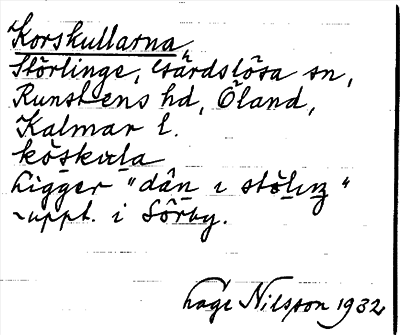 Korskullarna,
Störlinge, Gärdslösa sn,
Runstens hd, Öland,
Kalmar l.
köskula
Ligger "dän ı stölıŋ"
uppt. i Sörby.
Åage Nilsson 1932